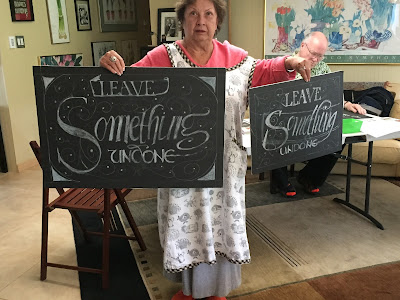 LEAVE
Something
UNDONE
LEAVE
Something
UNDONE